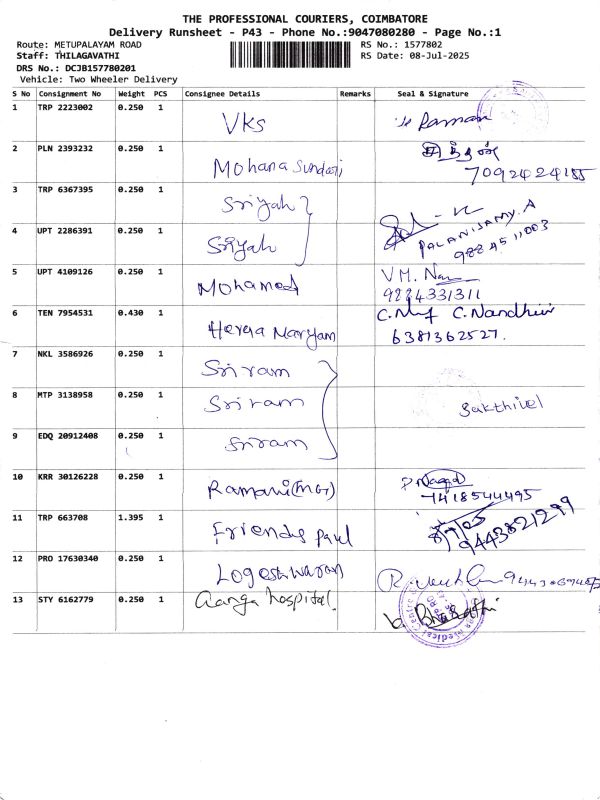 THE PROFESSIONAL COURIERS, COIMBATORE
Delivery Runsheet - P43 - Phone No.:9047080280 - Page No.:1
Route: METUPALAYAM ROAD RS No.: 1577802
Staff: THILAGAVATHI RS Date: 08-Jul-2025
DRS No.: DCJB157780201
Vehicle: Two Wheeler Delivery
S No Consignment No Weight PCS Consignee Details Remarks Seal & Signature
1 TRP 2223002 0.250 1 VKS Raman
2 PLN 2393232 0.250 1 Mohana Sundari
7092424185
3 TRP 6367395 0.250 1 Sriyah
4 UPT 2286391 0.250 1 Sriyah PALANISAMY.A
5 UPT 4109126 0.250 1 Mohamed V M.
9224331311
6 TEN 7954531 0.430 1 Maryam C. Nandhini
6381362527.
7 NKL 3586926 0.250 1 Sriram
8 MTP 3138958 0.250 1 Sriram Sakthivel
9 EDQ 20912408 0.250 1 Sriram
10 KRR 30126228 0.250 1 Ramani (MGT)
7418544495
11 TRP 663708 1.395 1 Friends Paul
9443821299
12 PRO 17630340 0.250 1 Logeshwaran
13 STY 6162779 0.250 1 Ganga hospital. Bharathi